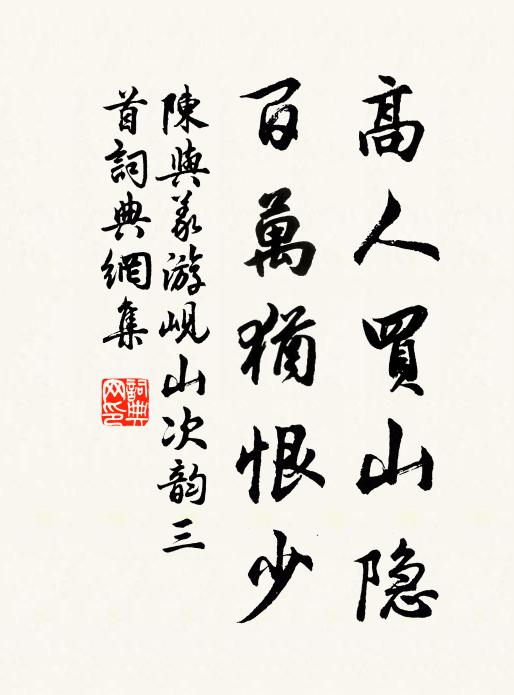 高人買山隐
百萬猶恨少
陳與義游峴山次韵三
首詞典網集
詞典
网印